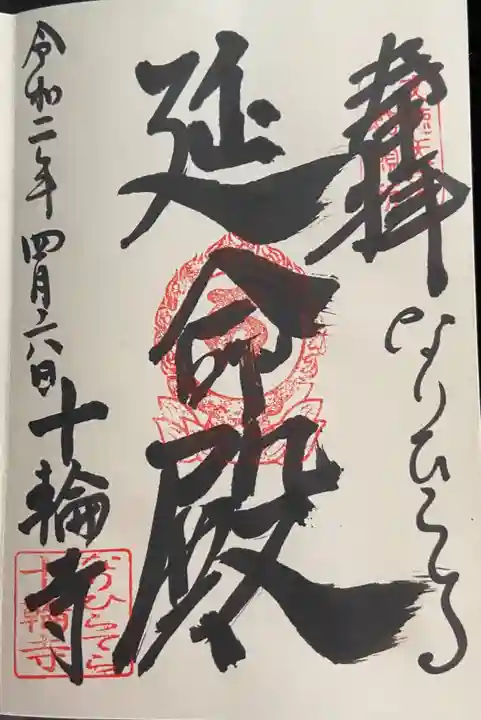 奉拝
なりひらてら
延命殿
令和二年四月六日
十輪寺
なりひらてら
十輪寺